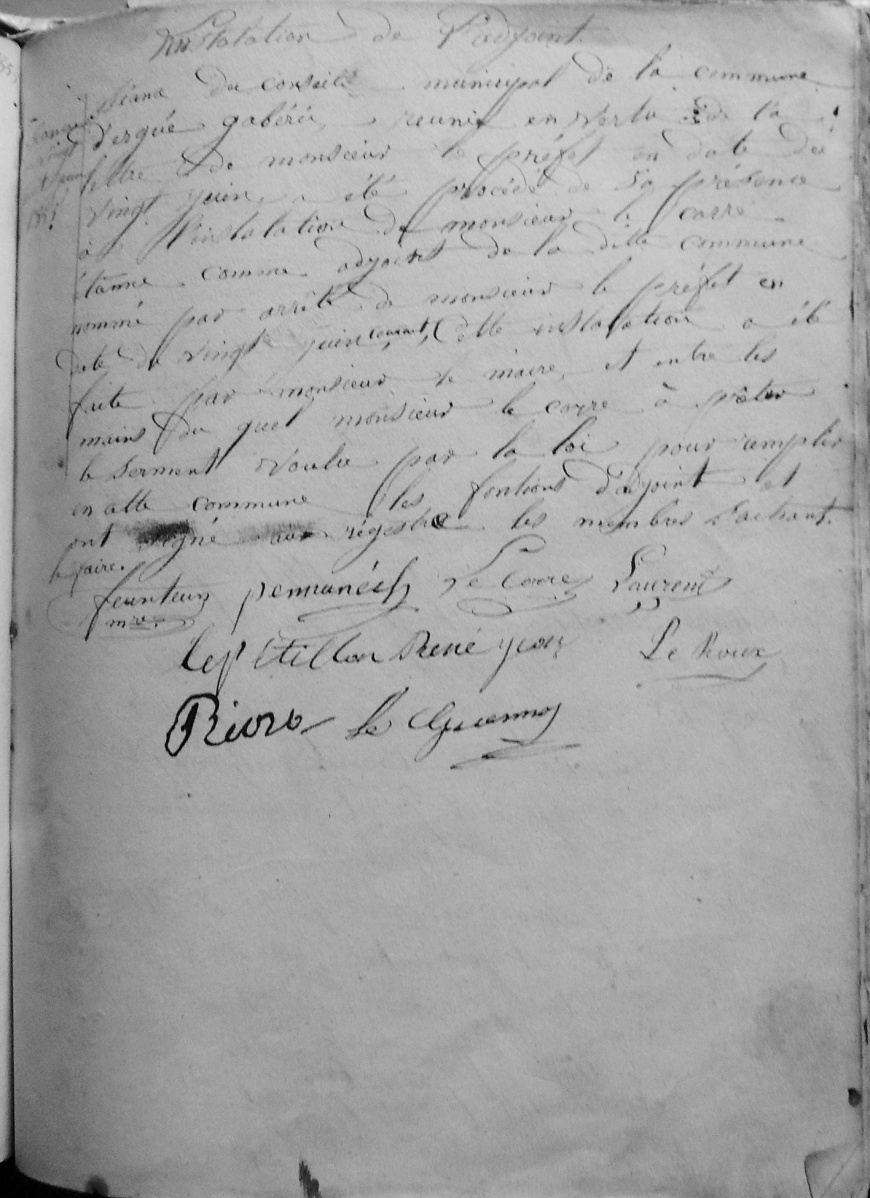 Instalation de l'adjoint.
Séance du conseille municipal de la commune
d'ergué gabéric, reunis en vertu de la
lettre de monsieur le préfet en date du
vingt juin, a été procédé de sa présence
à l'instalation de monsieur le corre
étienne comme adjoint de la ditte commune
nommé par arrêté de monsieur le préfet en
date du vingt juin courant, Cette instalation a été
faite par monsieur le maire, et entre les
mains du quel monsieur le corre à prêter
le serment voulu par la loi pour remplir
en cette commune les fontions d'adjoint et
ont signé au régestre les membres sachant
le faire.
feunteun Le Corre Laurent
mre
René Le Roux
Le Guennou